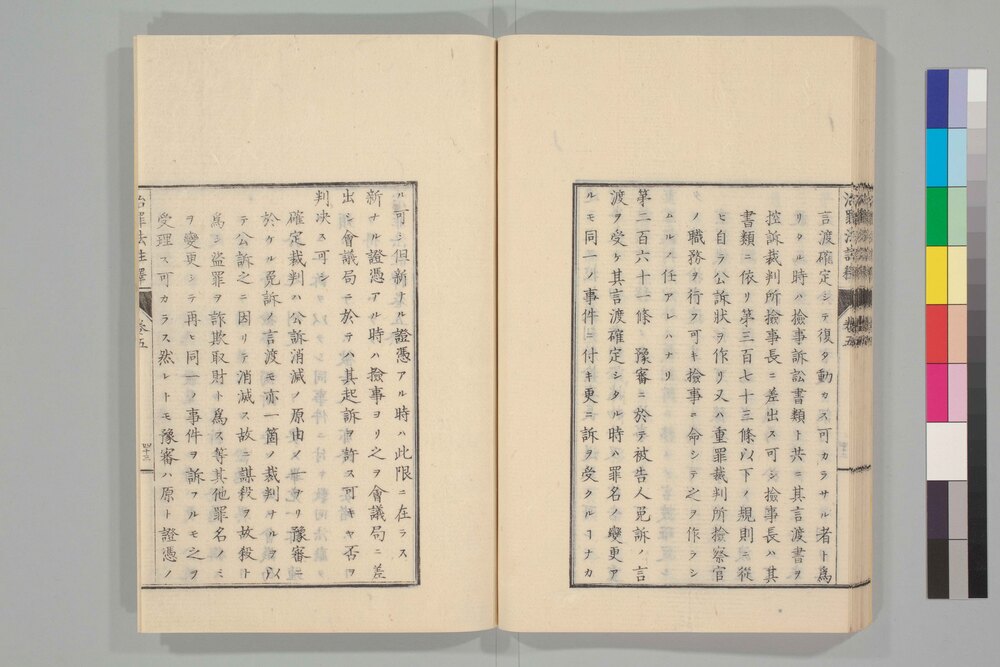 言渡確定シテ復タ動カス可カラサル者ト爲
リタル時ハ撿事訴訟書類ト共ニ其言渡書ヲ
控訴裁判所撿事長ニ差出ス可シ撿事長ハ其
書類ニ依リ第三百七十三條以下ノ規則ニ從
ヒ自ラ公訴狀ヲ作リ又ハ重罪裁判所撿察官
ノ職務ヲ行フ可キ撿事ニ命シテ之ヲ作ラシ
ムルノ任アレハナリ
第二百六十一條 豫審ニ於テ被告人免訴ノ言
渡ヲ受ケ其言渡確定シタル時ハ罪名ノ變更ア
ルモ同一ノ事件ニ付キ更ニ訴ヲ受クルヿナカ
ル可シ但新ナル證憑アル時ハ此限ニ在ラス
新ナル證憑アル時ハ撿事ヨリ之ヲ會議局ニ差
出シ會議局ニ於テハ其起訴ヲ許ス可キヤ否ヲ
判决ス可シ
確定裁判ハ公訴消滅ノ原由ノ一ナリ豫審ニ
於ケル免訴ノ言渡モ亦一箇ノ裁判ナルヲ以
テ公訴之ニ因リテ消滅ス故ニ謀殺ヲ故殺ト
爲シ盜罪ヲ詐欺取財ト爲ス等其他罪名ノミ
ヲ變更シテ再ヒ同一ノ事件ヲ訴フルモ之ヲ
受理ス可カラス然レトモ豫審ハ原ト證憑ノ
治罪法註釋
卷五
四十三